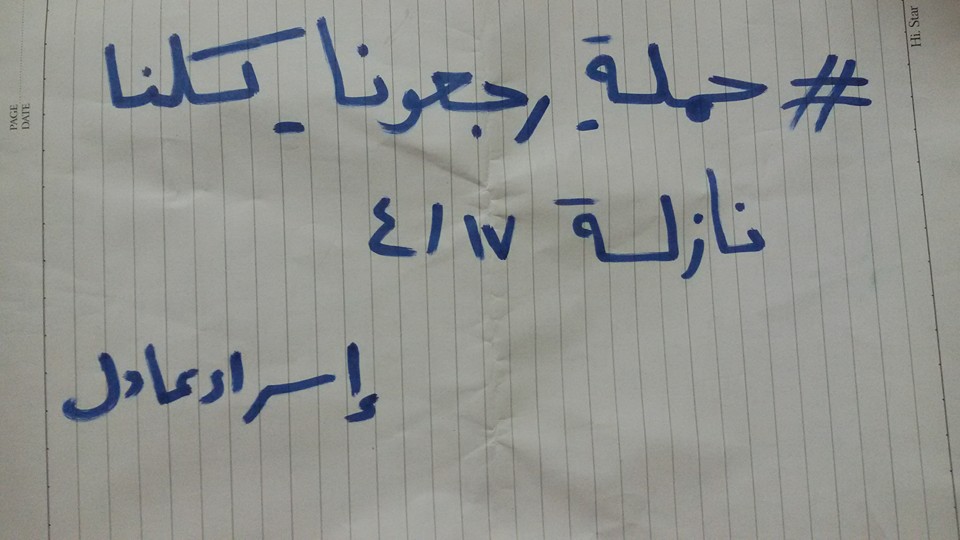 #حملة_رجعونا_كلنا
نازلة ١٧/٤
إسراء عادل
Hi. Star
PAGE
DATE